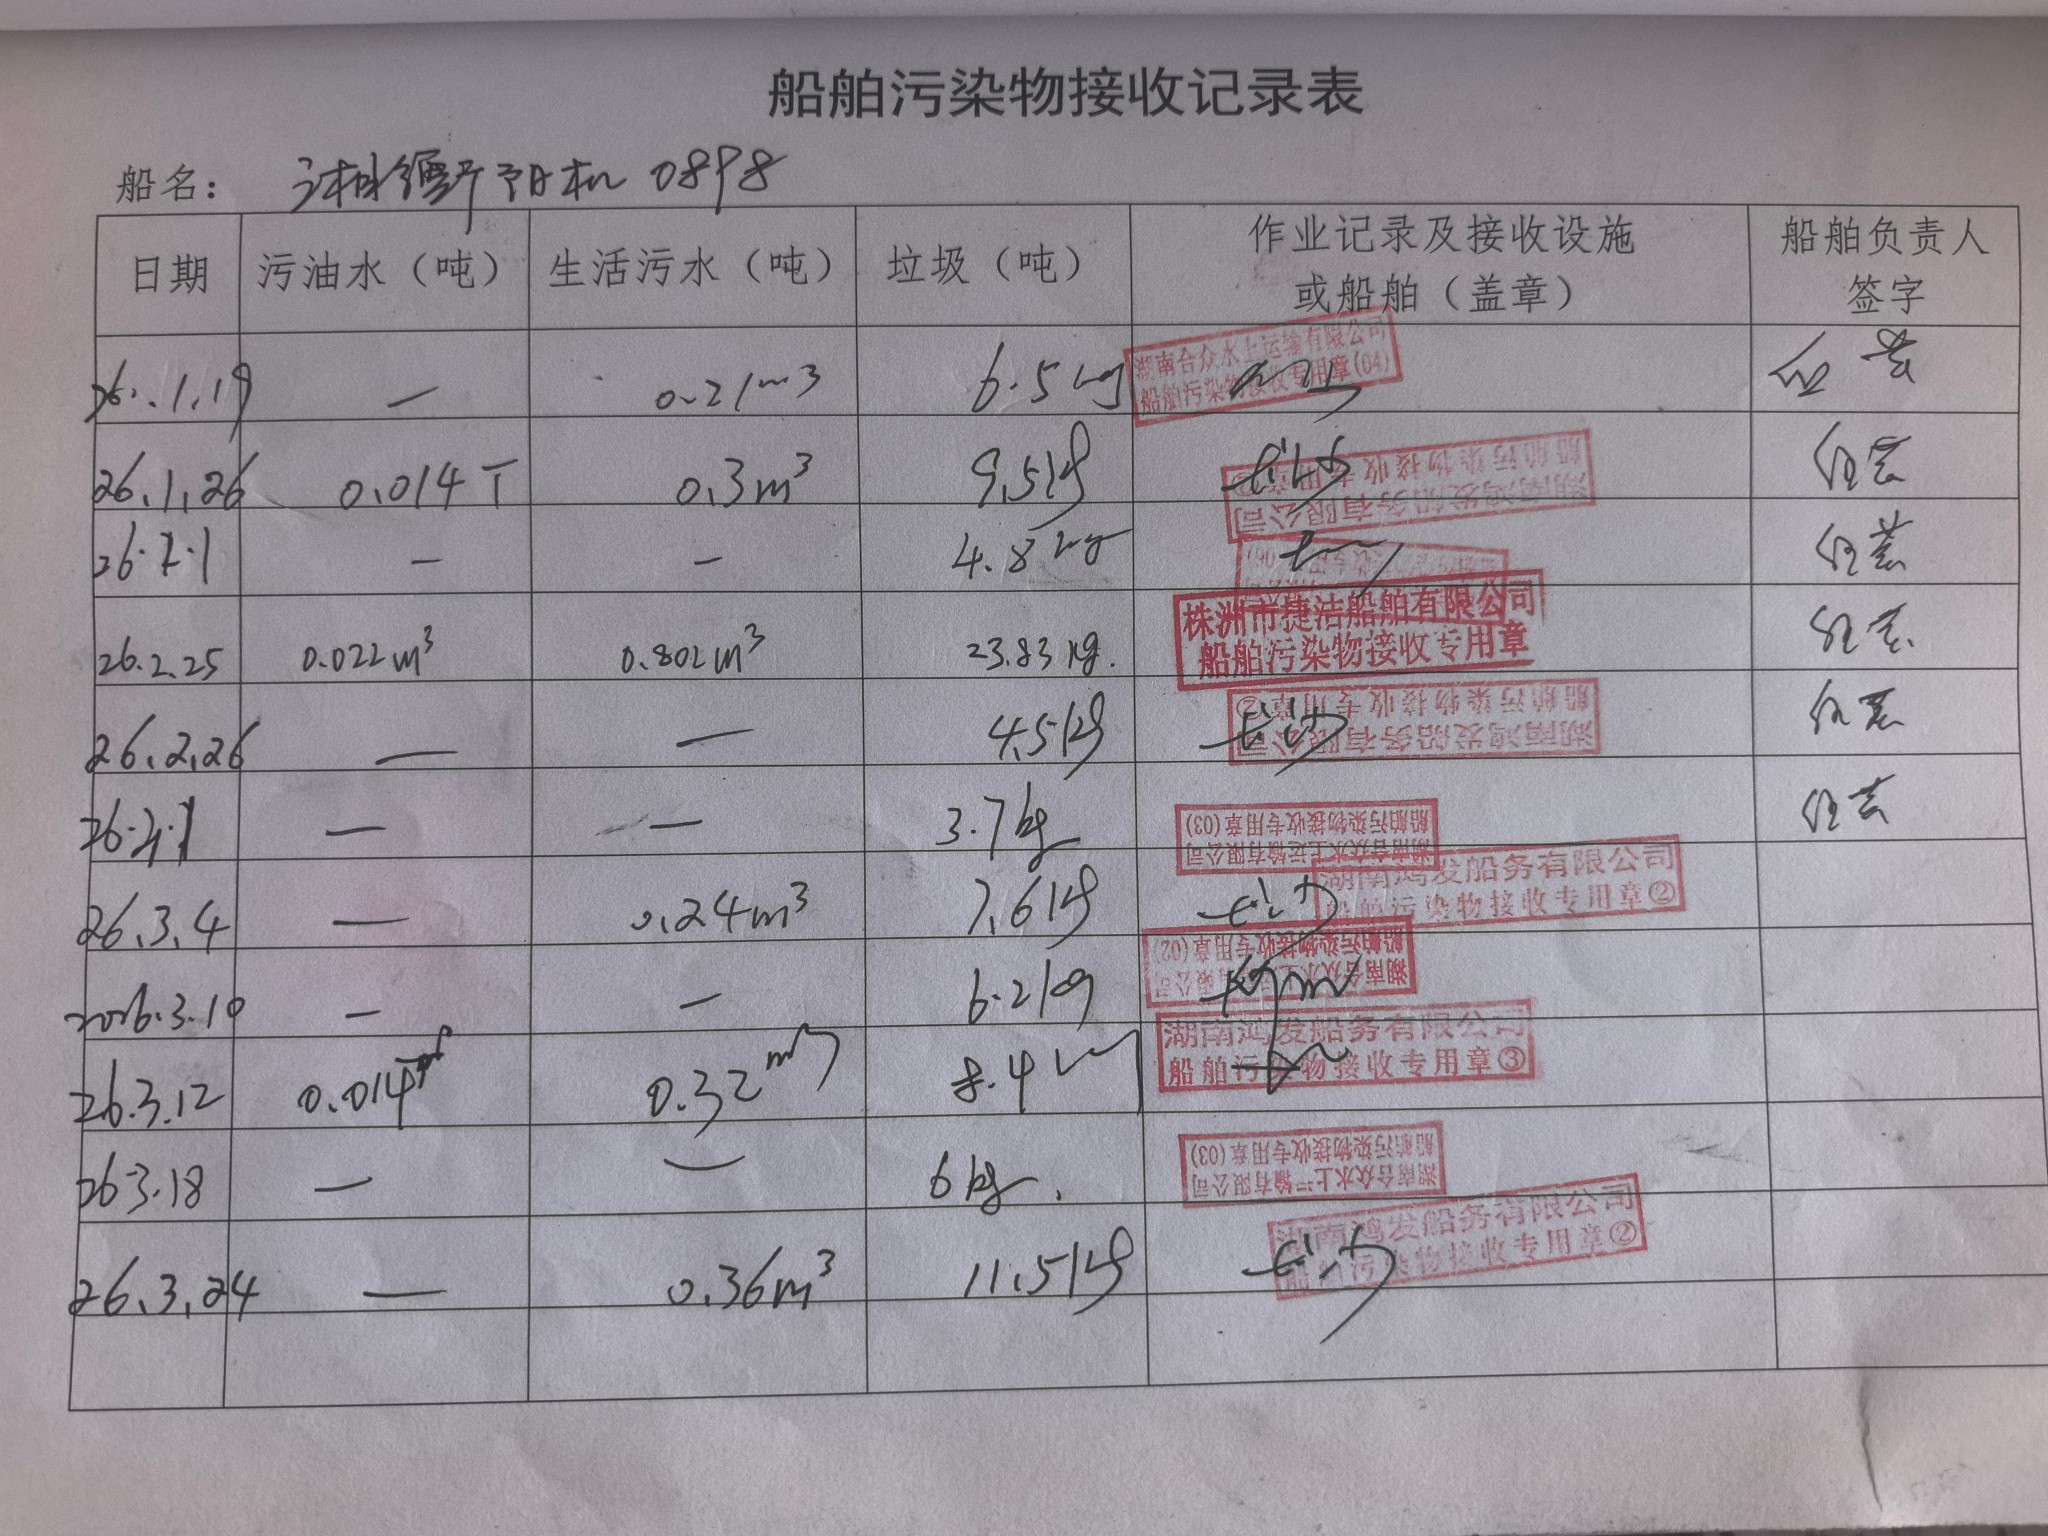 船舶污染物接收记录表
船名： 湘衡阳机 0898
日期 污油水（吨） 生活污水（吨） 垃圾（吨） 作业记录及接收设施或船舶（盖章） 船舶负责人签字
26.1.19 — 0.21m³ 6.5kg 湖南合众水上运输有限公司 船舶污染物接收专用章(04)
26.1.26 0.014T 0.3m³ 9.5kg 长沙 湖南鸿发船务有限公司 船舶污染物接收专用章
— — 4.8kg
26.2.25 0.022m³ 0.802m³ 23.83kg. 株洲市捷洁船舶有限公司 船舶污染物接收专用章
26.2.26 — — 4.5kg 长沙 湖南鸿发船务有限公司 船舶污染物接收专用章②
— — 3.7kg 湖南合众水上运输有限公司 船舶污染物接收专用章(03)
26.3.4 — 0.24m³ 7.6kg 长沙 湖南鸿发船务有限公司 船舶污染物接收专用章②
2026.3.10 — — 6.2kg 湖南合众水上运输有限公司 船舶污染物接收专用章(02)
26.3.12 0.014 0.32m³ 8.4 湖南鸿发船务有限公司 船舶污染物接收专用章③
26.3.18 — — 6kg. 湖南合众水上运输有限公司 船舶污染物接收专用章(03)
26.3.24 — 0.36m³ 11.5kg 长沙 湖南鸿发船务有限公司 船舶污染物接收专用章②